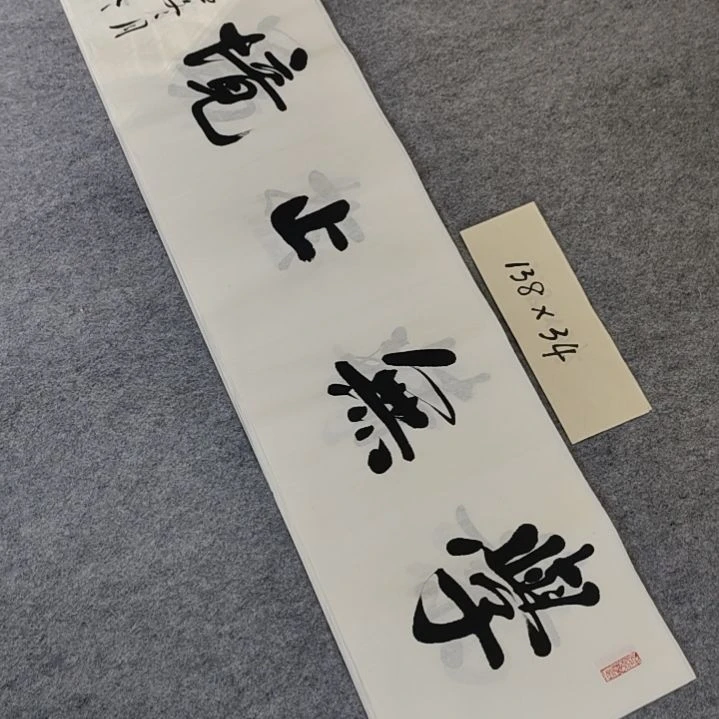 學無止境
月
138×34